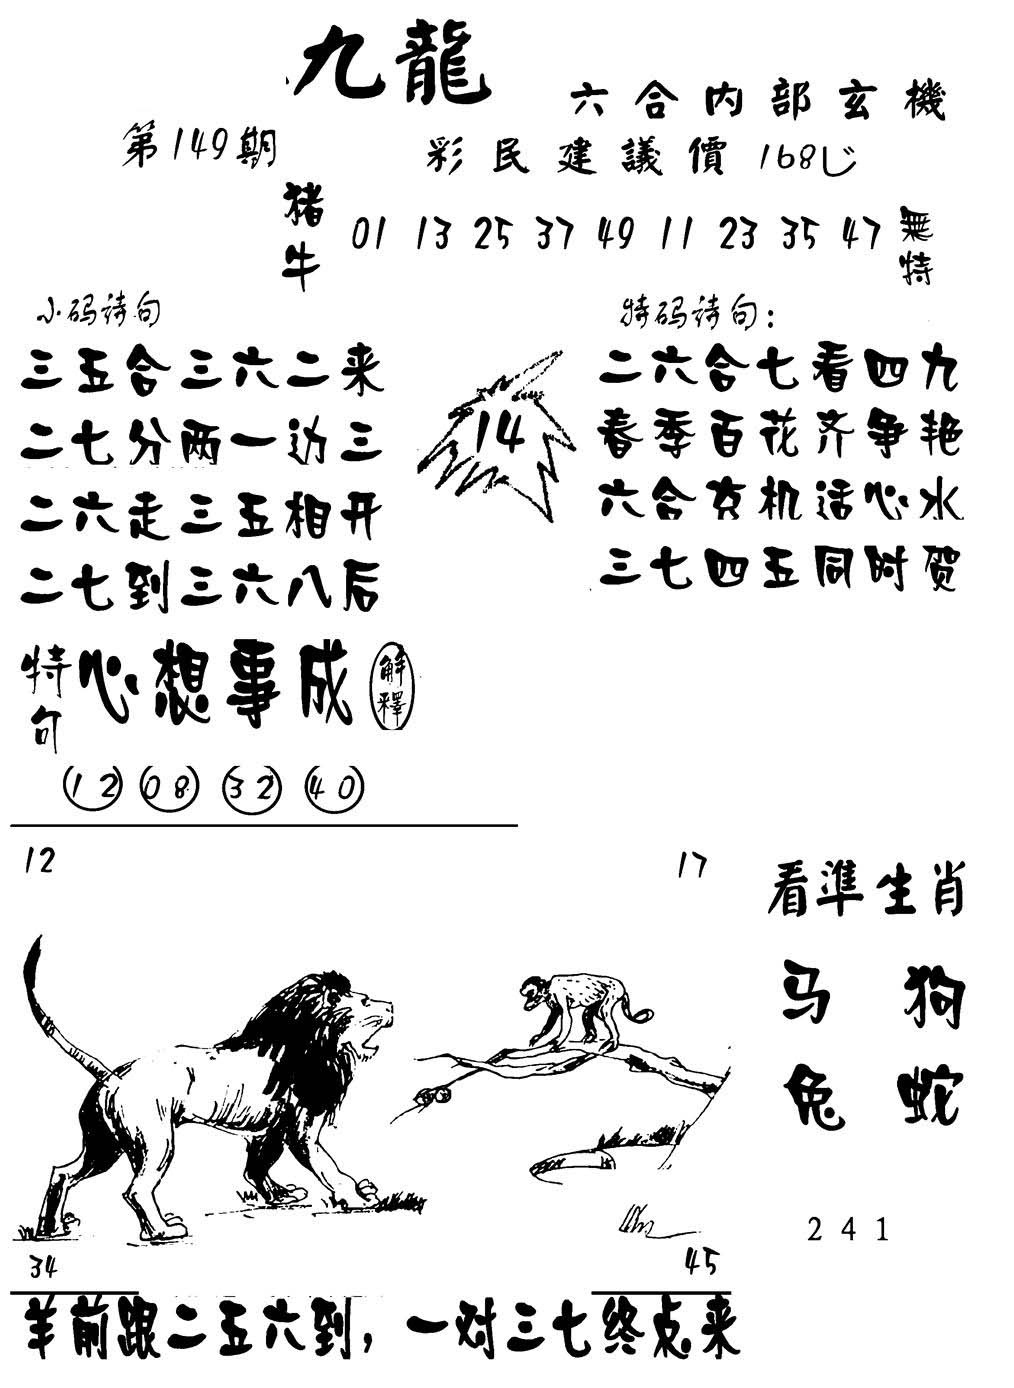 九龍
六合内部玄機
第149期
彩民建議價 168
猪牛 01 13 25 37 49 11 23 35 47 無特
小码诗句
三五合三六二来
二七分两一边三
二六走三五相开
二七到三六八后
14
特码诗句：
二六合七看四九
春季百花齐争艳
六合玄机话心水
三七四五同时贺
特句 心想事成 解釋
12 08 32 40
12 17
看準生肖
马 狗
兔 蛇
241
34 45
羊前跟二五六到，一对三七终点来